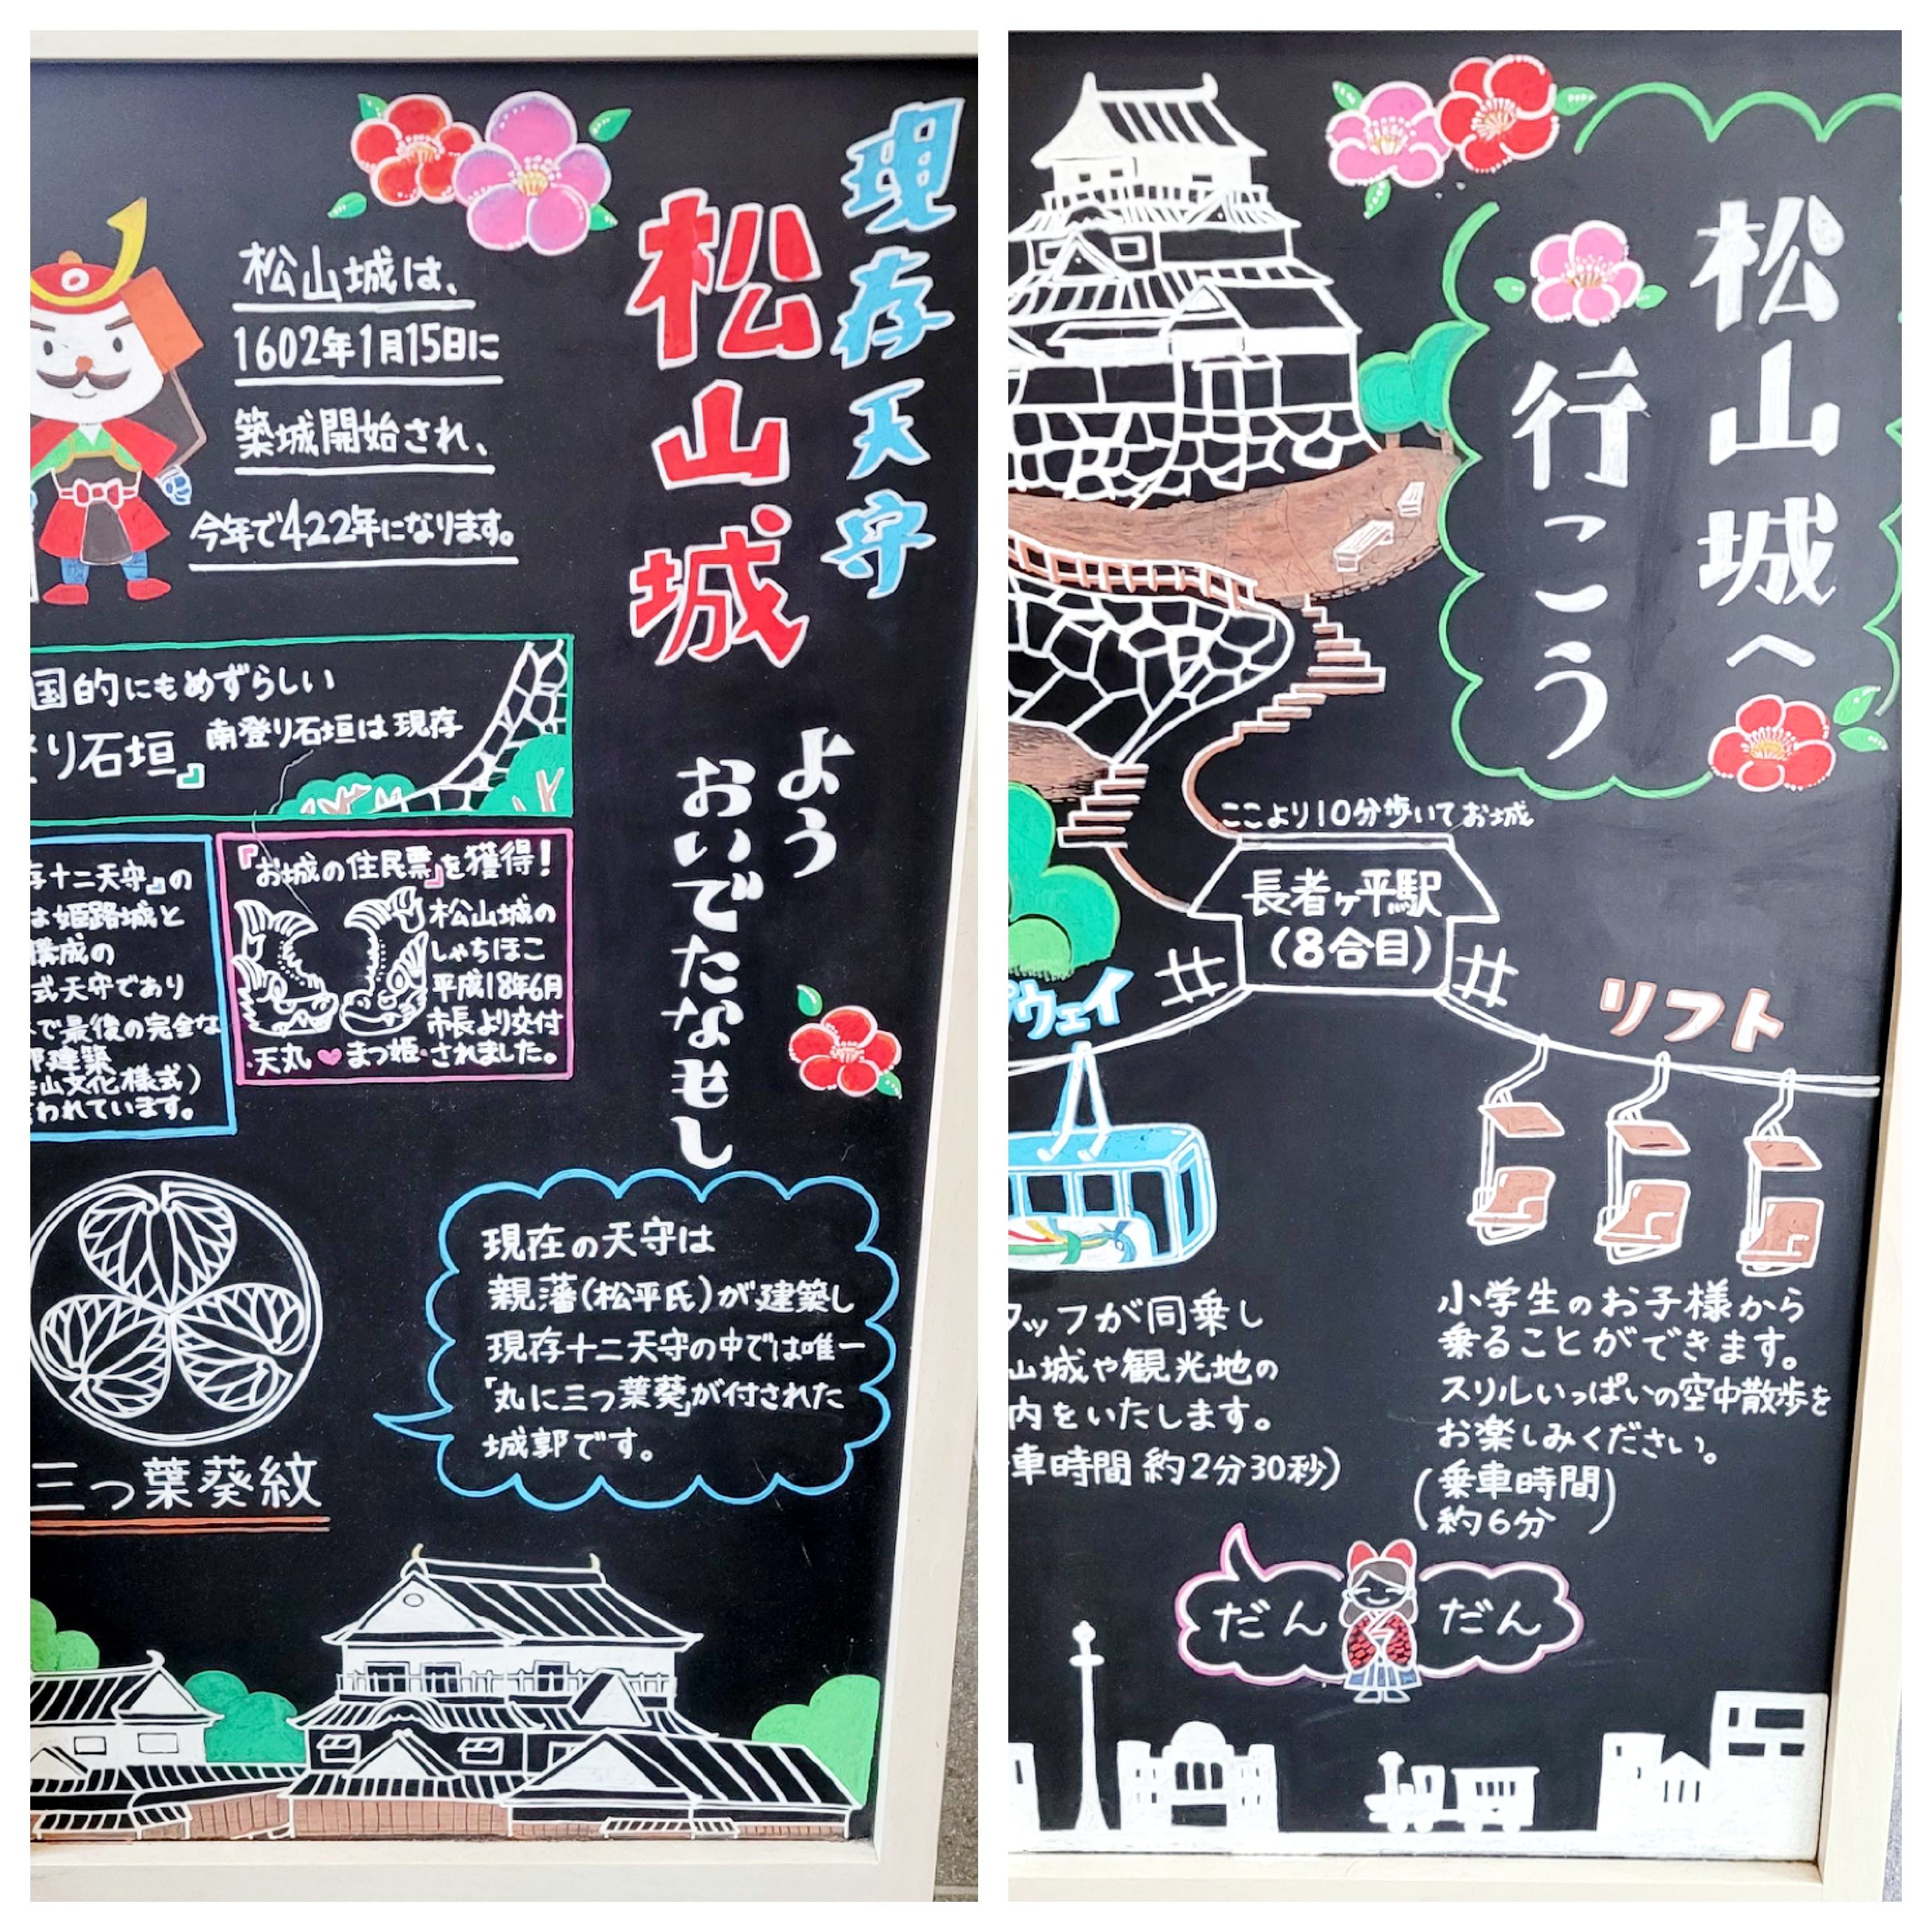 現存天守
松山城
よう
おいでたなもし
松山城は、
1602年1月15日に
築城開始され、
今年で422年になります。
国的にもめずらしい
り石垣』
南登り石垣は現存
存十二天守』の
は姫路城と
構成の
式天守であり
で最後の完全な
建築
山文化様式)
われています。
『お城の住民票』を獲得!
松山城の
しゃちほこ
平成18年6月
市長より交付
されました。
天丸♥まつ姫
三つ葉葵紋
現在の天守は
親藩(松平氏)が建築し
現存十二天守の中では唯一
「丸に三つ葉葵」が付された
城郭です。
松山城へ
行こう
ここより10分歩いてお城
長者ヶ平駅
(8合目)
プウェイ
リフト
タッフが同乗し
山城や観光地の
内をいたします。
車時間 約2分30秒)
小学生のお子様から
乗ることができます。
スリルいっぱいの空中散歩を
お楽しみください。
(乗車時間
約6分)
だん だん